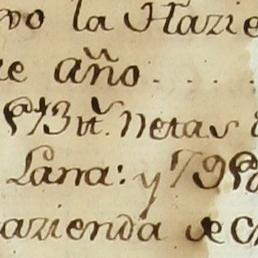 vo la Hazie
e año . . . .
573 tt. netas
Lana: y 795
azienda de C